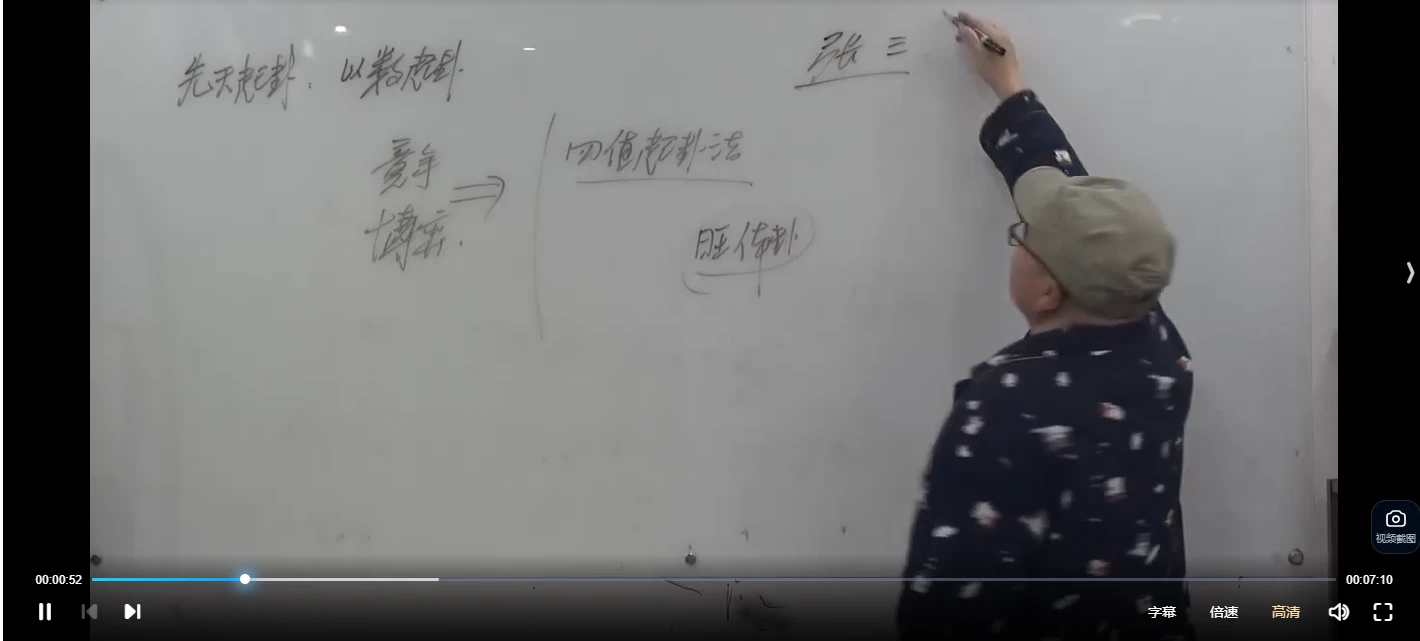 先天起卦. 以数起卦.
张三
竞争
博弈.
四值起卦法
旺体卦
视频截图
00:00:52
00:07:10
字幕 倍速 高清